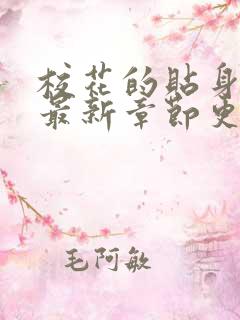 校花的贴身
最新章节更
毛阿敏